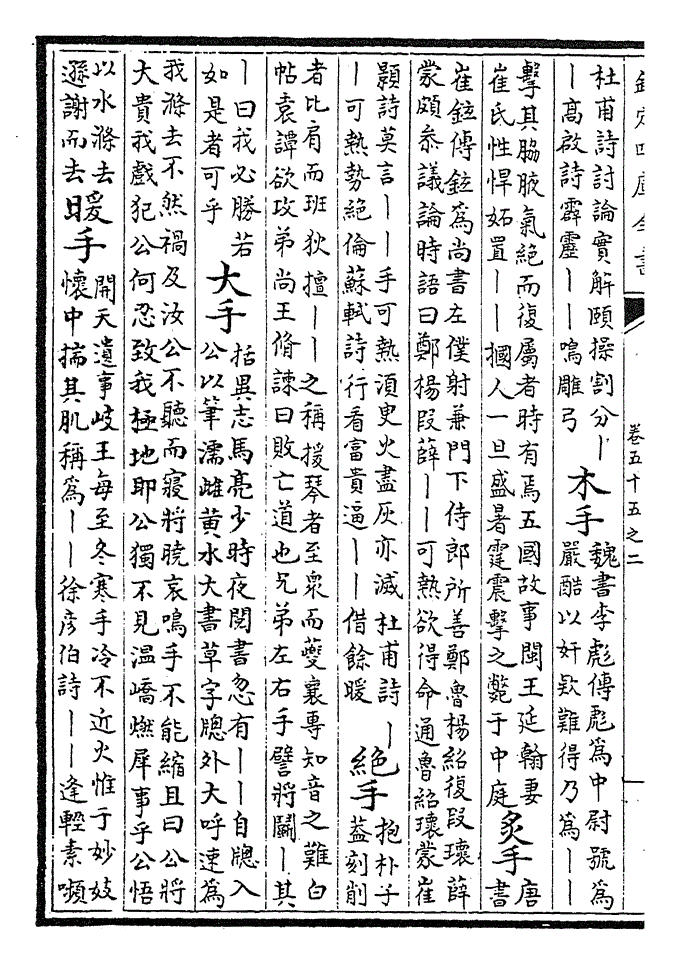 欽定四庫全書
卷五十五之二
杜甫詩討論實解頤操割分丨
丨高啟詩霹靂丨丨鳴雕弓
木手
魏書李彪傳彪為中尉號為
嚴酷以奸欵難得乃為丨丨
擊其脇腋氣絕而復屬者時有焉五國故事閩王延翰妻
崔氏性悍妬置丨丨摑人一旦盛暑霆震擊之斃于中庭
炙手
唐
書
崔鉉傳鉉為尚書左僕射兼門下侍郎所善鄭魯楊紹復段瓌薛
蒙頗叅議論時語曰鄭楊段薛丨丨可熱欲得命通魯紹瓌蒙崔
顥詩莫言丨丨手可熱湏臾火盡灰亦滅杜甫詩丨
丨可熱勢絕倫蘇軾詩行看富貴逼丨丨借餘暖
絕手
抱朴子
葢刻削
者比肩而班狄擅丨丨之稱援琴者至衆而夔襄専知音之難白
帖袁譚欲攻弟尚王脩諫曰敗亡道也兄弟左右手譬將鬭丨其
丨曰我必勝若
如是者可乎
大手
括異志馬亮少時夜閱書忽有丨丨自牕入
公以筆濡雌黄水大書草字牕外大呼速為
我滌去不然禍及汝公不聽而寢將曉哀鳴手不能縮且曰公將
大貴我戲犯公何忍致我極地耶公獨不見温嶠燃犀事乎公悟
以水滌去
遜謝而去
暖手
開天遺事岐王每至冬寒手冷不近火惟于妙妓
懷中揣其肌稱為丨丨徐彦伯詩丨丨逢輕素嚬